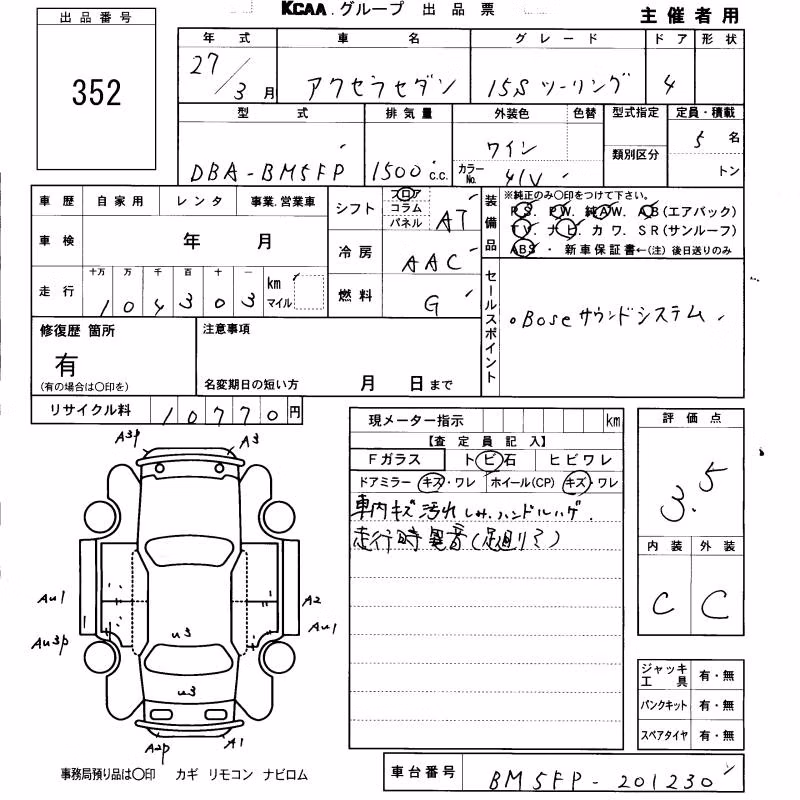 KCAA.グループ 出品票
主催者用
出品番号
352
年式 車名 グレード ドア 形状
27/3月 アクセラセダン 15S ツーリング 4
型式 排気量 外装色 色替 型式指定 定員・積載
DBA-BM5FP 1500c.c. ワイン 類別区分 5名
カラーNo. 41V トン
車歴 自家用 レンタ 事業.営業車
シフト フロア コラム パネル AT
車検 年 月
冷房 AAC
走行 十万 万 千 百 十 一 km マイル
104303
燃料 G
装備品 ※純正のみ○印をつけて下さい。
PS. PW. 純AW. AB(エアバック)
TV. ナビ. カワ. SR(サンルーフ)
ABS・ 新車保証書←(注) 後日送りのみ
セールスポイント
。Boseサウンドシステム
修復歴 箇所
有
(有の場合は○印を)
注意事項
名変期日の短い方 月 日まで
リサイクル料 10770円
現メーター指示 km
【査定員記入】
Fガラス トビ石 ヒビワレ
ドアミラー キズ・ワレ ホイール(CP) キズ・ワレ
車内キズ汚れ しみ.ハンドルハゲ.
走行時異音(足廻り?)
評価点
3.5
内装 外装
C C
ジャッキ工具 有・無
パンクキット 有・無
スペアタイヤ 有・無
A3P A3
Au1 A2
Au3P Au1
u3
u3
A2P A1
事務局預り品は○印 カギ リモコン ナビロム
車台番号 BM5FP-201230